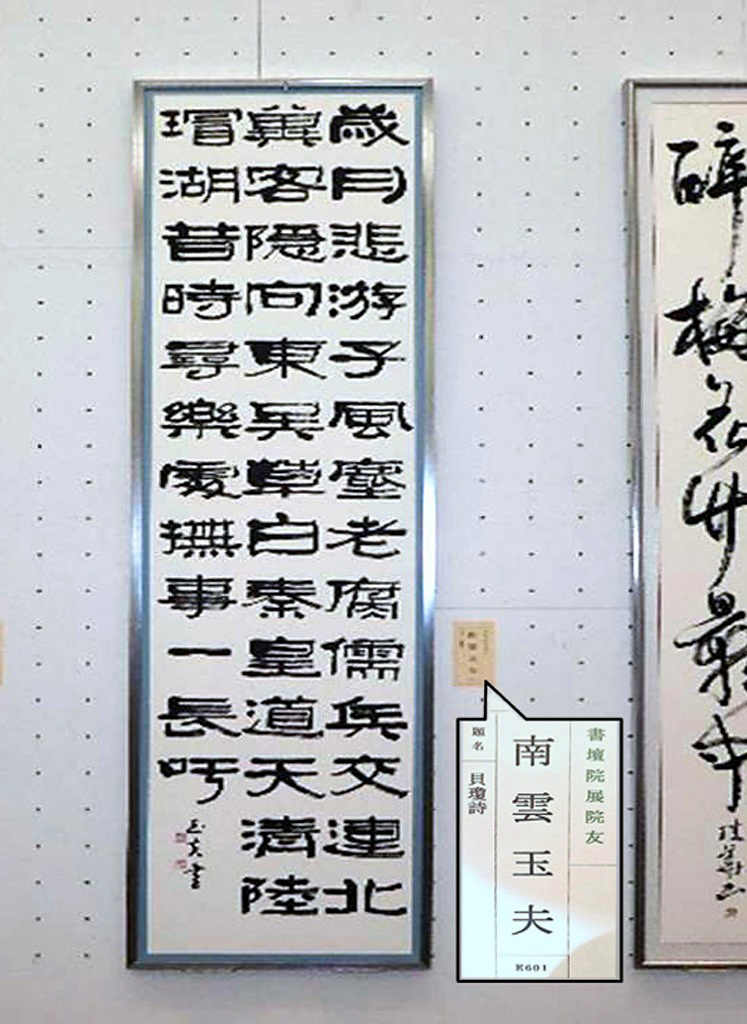 歲月悲游子風塵老腐儒兵交連北
冀客隱向東吳草白秦皇道天清陸
瑁湖昔時尋樂處撫事一長吁
玉夫書
書壇院展院友
南雲玉夫
題名 貝瓊詩
E601
梅花